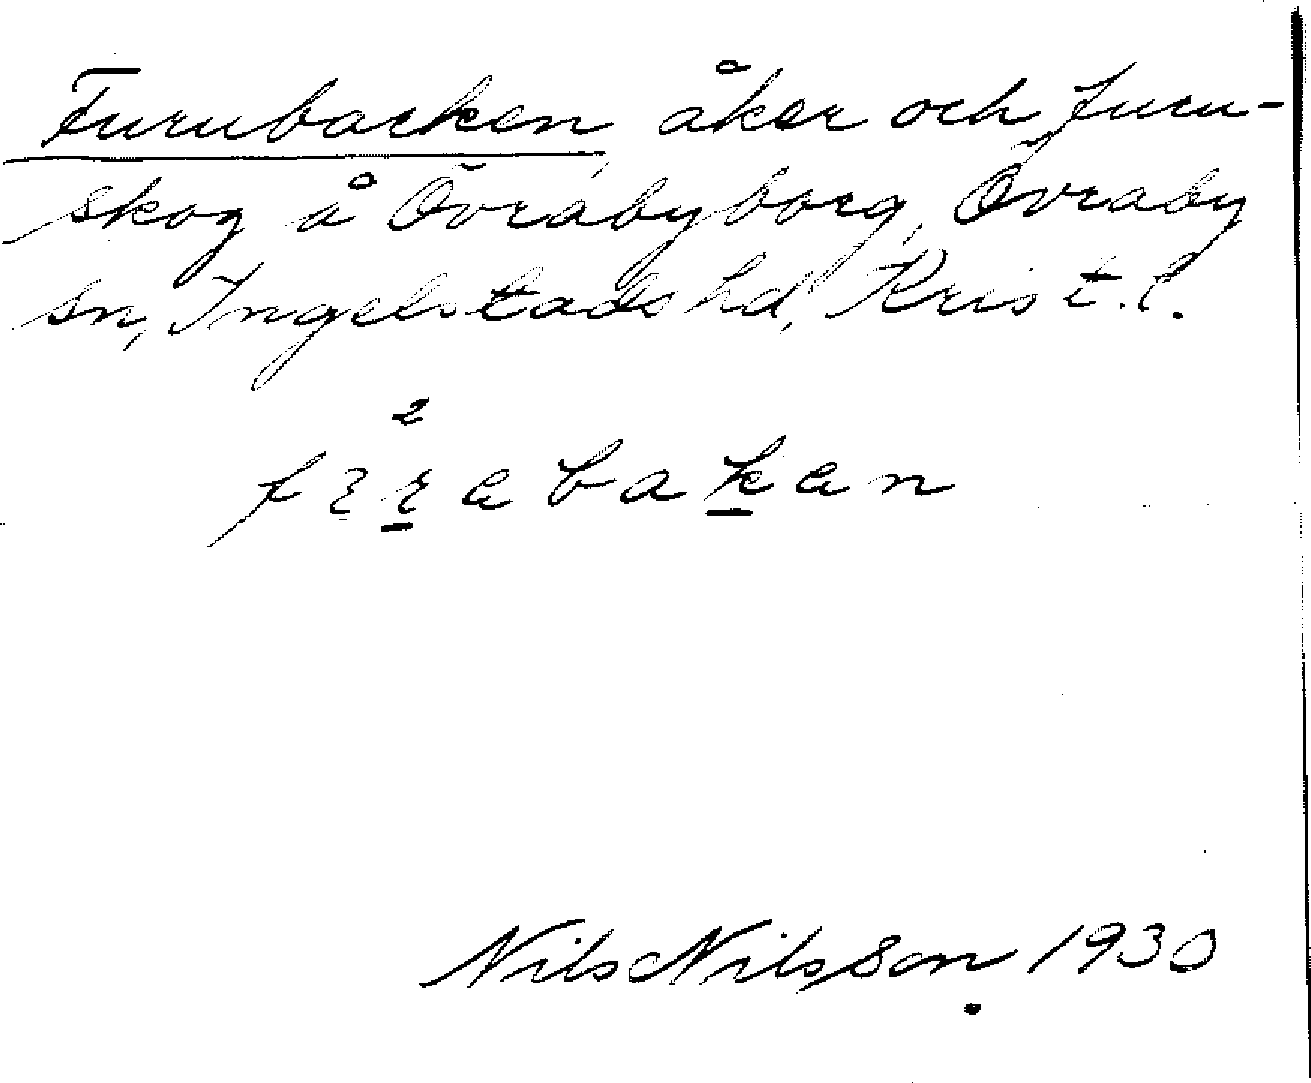 Furubacken, åker och furu-
skog å Övrabyborg, Övraby
sn, Ingelstads hd, Krist. l.
Nils Nilsson 1930